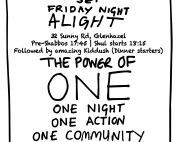 SET
FRIDAY NIGHT
ALIGHT
32 Sunny Rd, Glenhazel
Pre-Shabbos 17:45 | Shul starts 18:15
Followed by amazing Kiddush (Dinner starters)
THE POWER OF
ONE
ONE NIGHT
ONE ACTION
ONE COMMUNITY